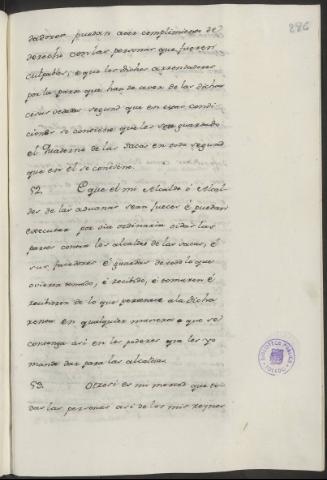 286
dadores puedan aver complimiento de
derecho con las personas que fueren
culpadas, e que los dichos arrendadores
por la pena que han de aver de las dichas
cosas vedadas segund que en estas condi-
ciones se contiene que les sea guardado
el Quaderno de las Sacas en esto segund
que en él se contiene.
52. E que el mi Alcalde ó Alcal-
des de las aduanas sean jueces é puedan
executar por via ordinaria o dar las
penas contra los alcaldes de las sacas, é
sus fiadores é guardas de todo lo que
ovieren tomado, é recibido, é tomaren é
recibieren de lo que pertenece a la dicha
renta en qualquier manera e que se
contenga asi en los poderes que les yo
mandé dar para las alcaldias.
53. Otrosi es mi merced que to-
das las personas asi de los mis reynos
BIBLIOTECA PUBLICA
TOLEDO